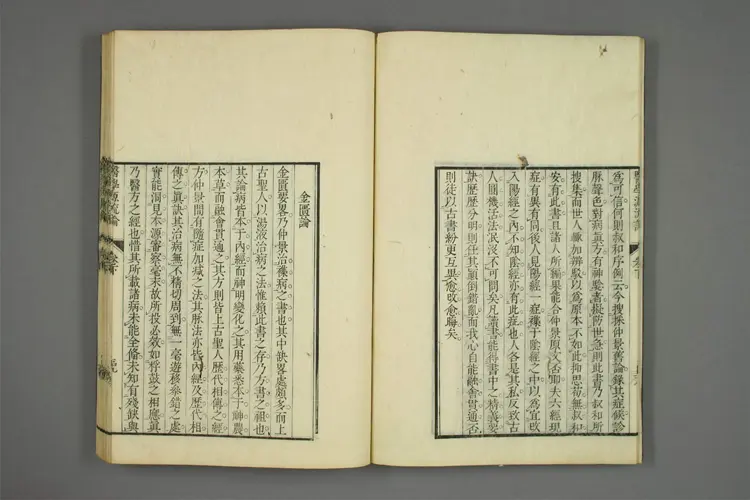 醫學源流論 卷下
爲可信何則叔和序例云今搜採仲景舊論錄其症候診
脈聲色對病眞方有神驗者擬防世急則此書乃叔和所
搜集而世人輒加辨駁以爲原本不如此抑思苟無叔和
安有此書且諸人所編果能合仲景原文否耶夫六經現
症有異有同後人見陽經一症雜于陰經之中以爲宜改
入陽經之內不知陰經亦有此症也人各是其私反致古
人圓機活法泯沒不可問矣凡讀書能得書中之精義要
訣歷歷分明則任其顚倒錯亂而我心自能融會貫通否
則徒以古書紛更互異愈改愈晦矣
金匱論
金匱要畧乃仲景治雜病之書也其中缺畧處頗多而上
古聖人以湯液治病之法惟賴此書之存乃方書之祖也
其論病皆本于內經而神明變化之其用藥悉本于神農
本草而融會貫通之其方則皆上古聖人歷代相傳之經
方仲景間有隨症加減之法其脈法亦皆內經及歷代相
傳之眞訣其治病無不精切周到無一毫遊移參錯之處
實能洞見本源審察毫末故所投必效如桴鼓之相應眞
乃醫方之經也惜其所載諸病未能全備未知有殘缺與
醫學源流論 卷下